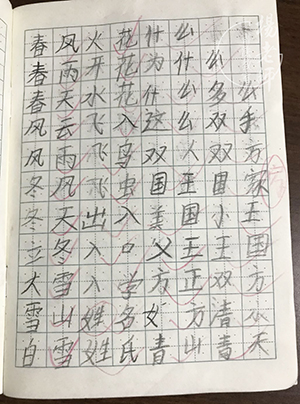 春风火花什么
春雨开花为什么
春天水花什么多么
风云飞入这么双手
风雨飞鸟双人双方
冬风飞虫国王国家
冬天出入美国小王
立冬入口父王王国
大雪入学方正双方
雪山姓名女方清水
白雪姓氏青山青天